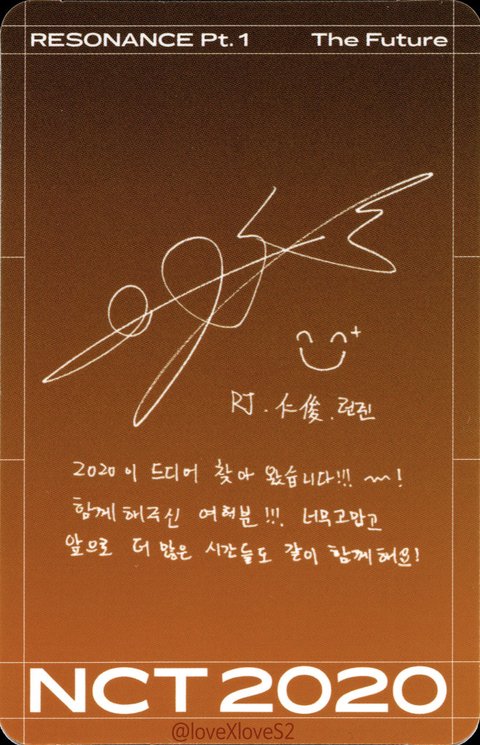 RESONANCE Pt. 1 The Future
RJ. 仁俊.런쥔
2020이 드디어 찾아 왔습니다!!! ~!
함께 해주신 여러분!!! 너무고맙고
앞으로 더 많은 시간들도 같이 함께해요!
NCT 2020
@loveXloveS2